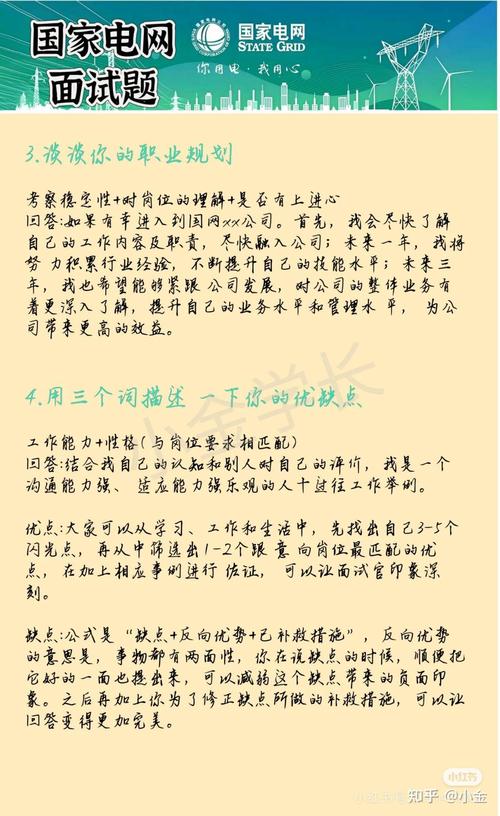 国家电网
面试题
国家电网
STATE GRID
你用电·我用心
3.谈谈你的职业规划
考察稳定性+对岗位的理解+是否有上进心
回答:如果有幸进入到国网xx公司。首先，我会尽快了解
自己的工作内容及职责，尽快融入公司；未来一年，我将
努力积累行业经验，不断提升自己的技能水平；未来三
年，我也希望能够紧跟公司发展，对公司的整体业务有
着更深入了解，提升自己的业务水平和管理水平，为公
司带来更高的效益。
小金学长
4.用三个词描述一下你的优缺点
工作能力+性格(与岗位要求相匹配)
回答:结合我自己的认知和别人对自己的评价，我是一个
沟通能力强、适应能力强乐观的人+过往工作举例。
优点:大家可以从学习、工作和生活中，先找出自己3-5个
闪光点，再从中筛选出1-2个跟意向岗位最匹配的优
点，在加上相应事例进行佐证，可以让面试官印象深
刻。
缺点:公式是“缺点+反向优势+已补救措施”，反向优势
的意思是，事物都有两面性，你在说缺点的时候，顺便把
它好的一面也提出来，可以减弱这个缺点带来的负面印
象。之后再加上你为了修正缺点所做的补救措施，可以让
回答变得更加完美。
小红书
知乎 @小金